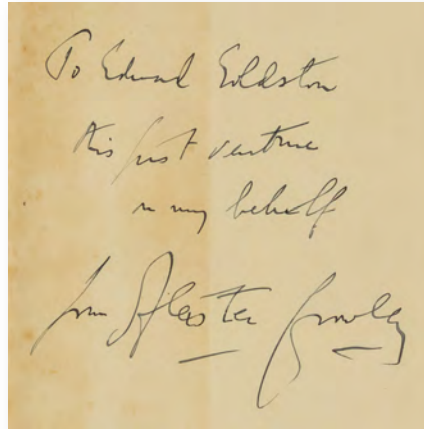 To Edward Goldston
this first venture
in my behalf
from Aleister Crowley